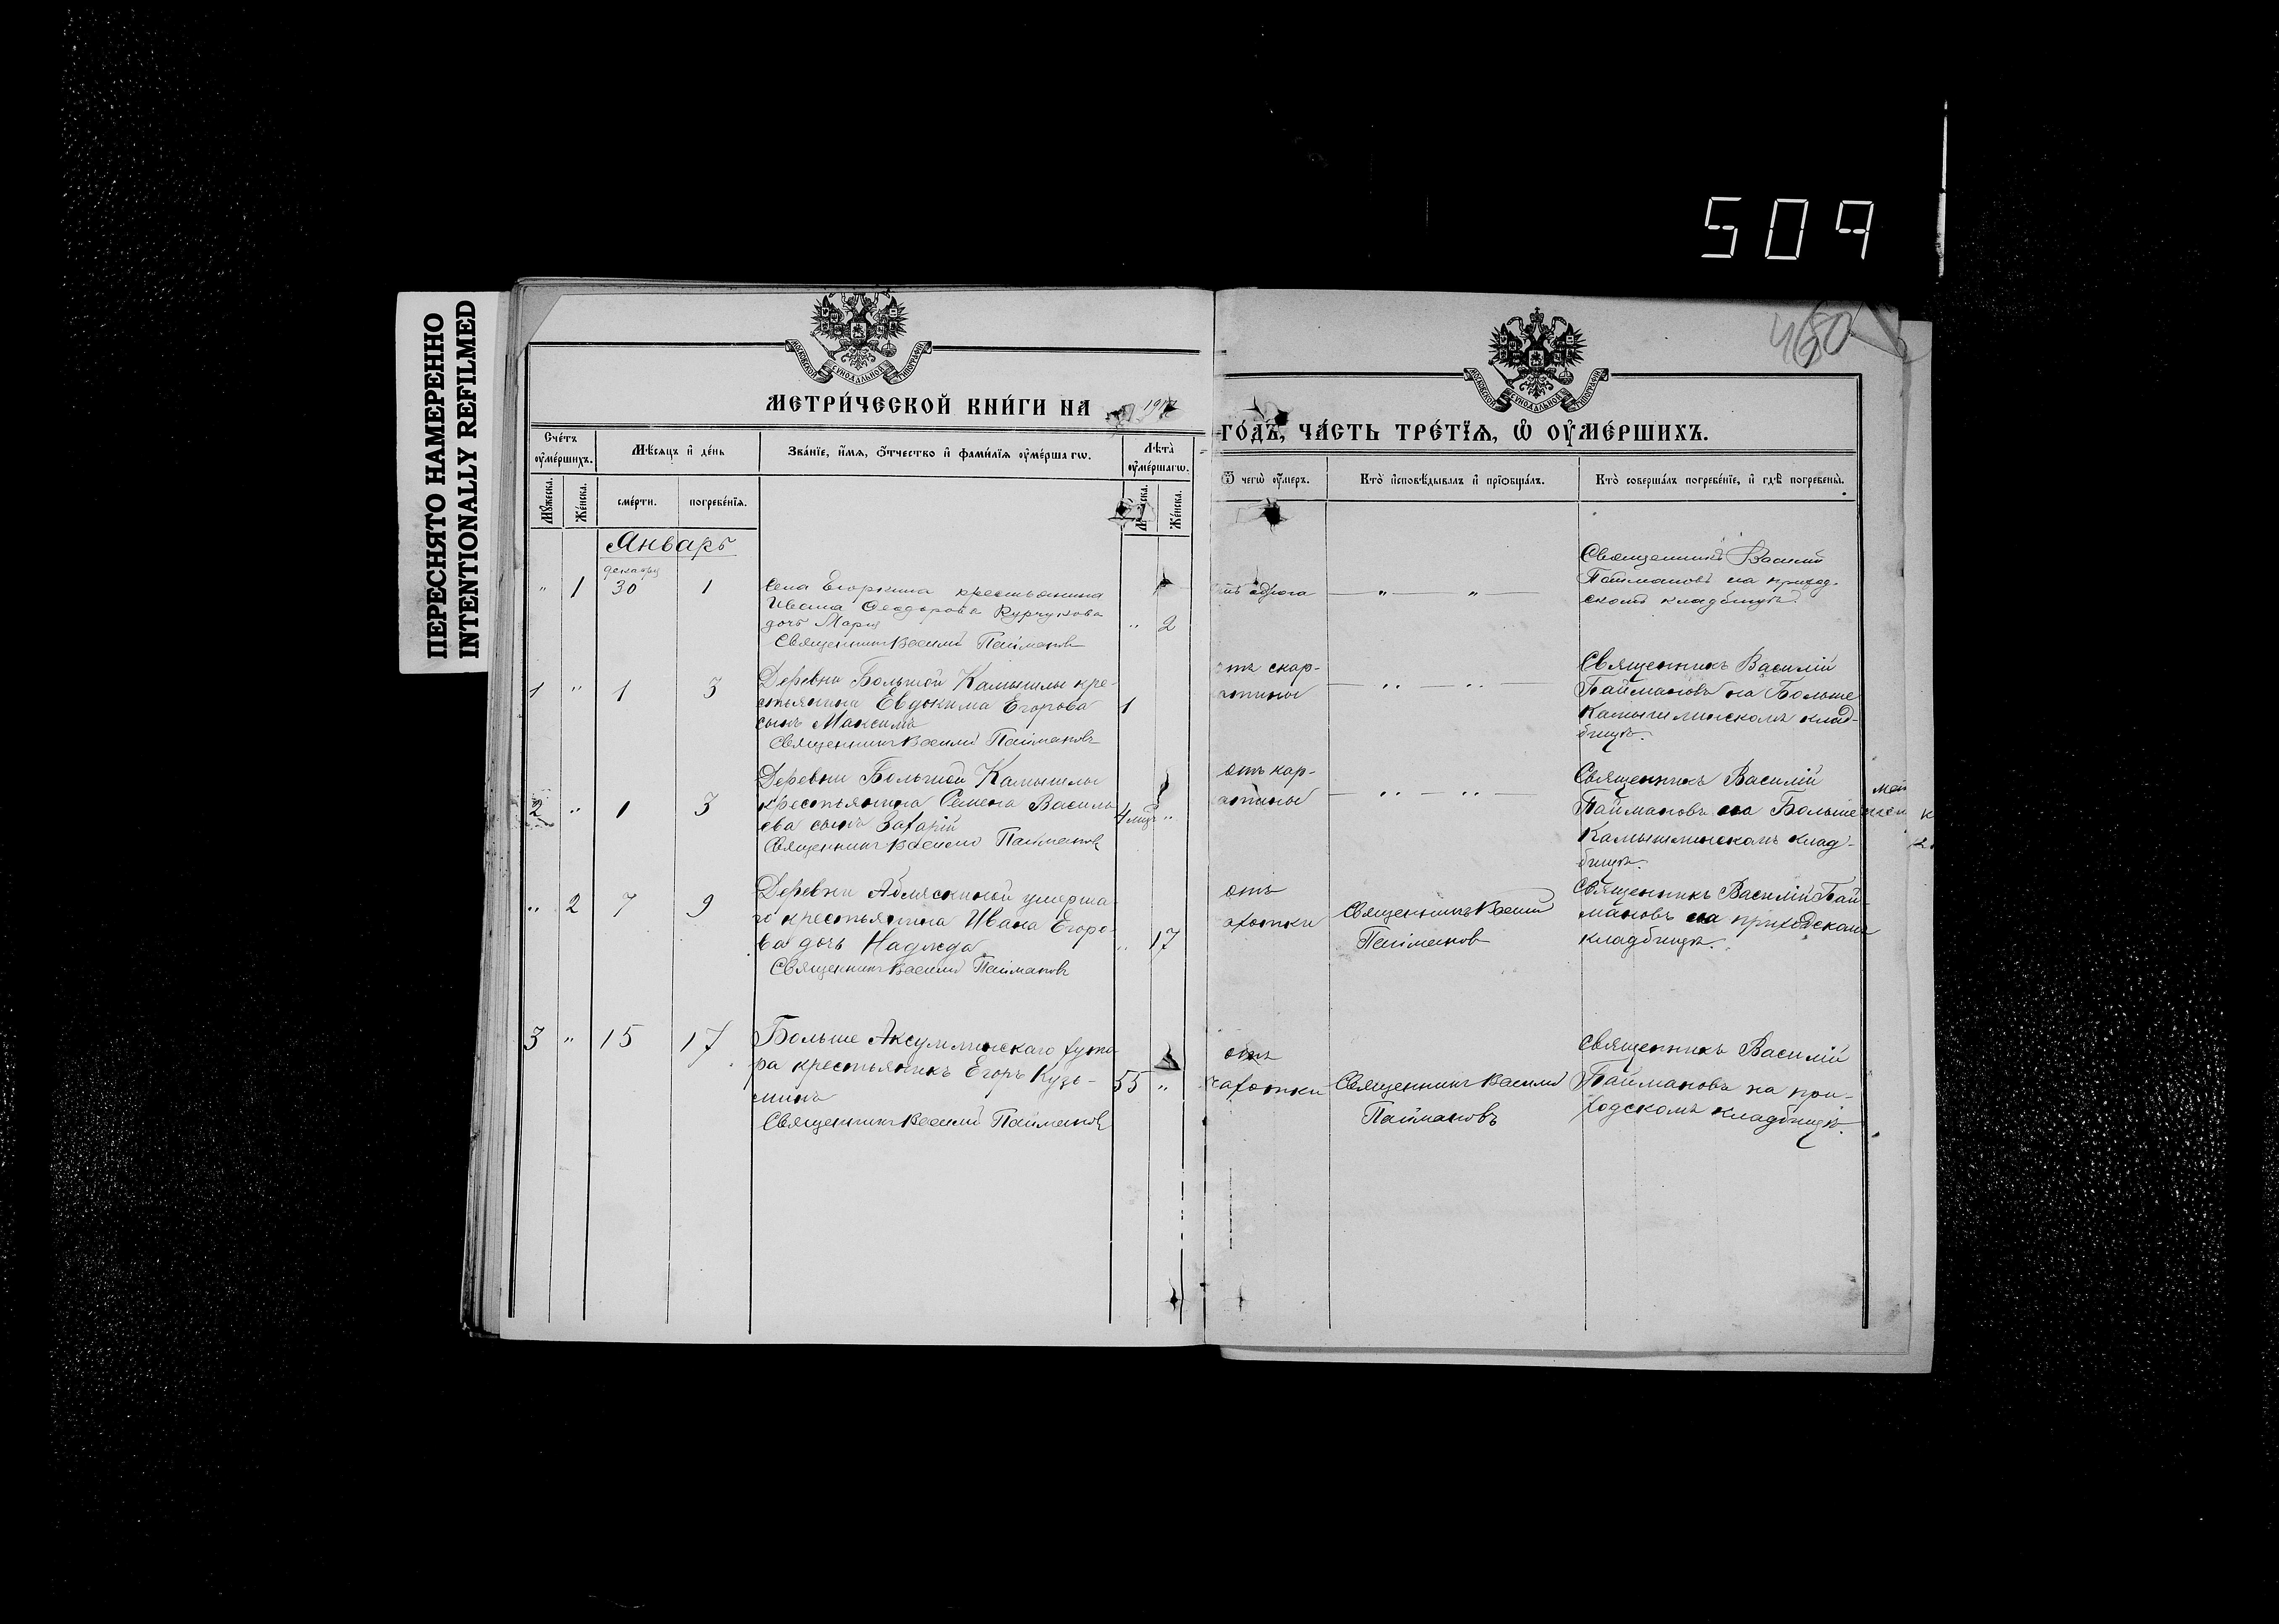 509
ПЕРЕСНЯТО НАМЕРЕННО
INTENTIONALLY REFILMED
460
МОСКОВСКОЙ СѴНОДАЛЬНОЙ ТИПОГРАФІИ
МОСКОВСКОЙ СѴНОДАЛЬНОЙ ТИПОГРАФІИ
МЕТРИ́ЧЕСКОЙ КНИ́ГИ НА
ГО́ДЪ, ЧА́СТЬ ТРЕ́ТЇѦ, Ѽ ОУ҆МЕ́РШИХЪ.
Сче́тъ оу҆ме́ршихъ.
Мѣ́сяцъ и҆ де́нь
Зва́нїе, и҆́мѧ, ѻ҆́тчество и҆ фами́лїѧ оу҆ме́ршагѡ.
Лѣ́та оу҆ме́ршагѡ.
Ѿ чегѡ̀ оу҆́меръ.
Кто̀ и҆сповѣ́дывалъ и҆ прїѡбща́лъ.
Кто̀ соверша́лъ погребе́нїе, и҆ гдѣ̀ погребены̀.
Мꙋ́жеска.
Же́нска.
сме́рти.
погребе́нїѧ.
Же́нска.
Январь
декабря
" 1 30 1
Села Егоркина крестьянина
Ивана Ѳеодорова Курчукова
дочь Марія
Священникъ Василій Паймановъ
" 2
" "
Священникъ Василій
Паймановъ на приход-
скомъ кладбищѣ.
1 " 1 3
Деревни Большой Камышлы кре-
стьянина Евдокима Егорова
сынъ Максимъ
Священникъ Василій Паймановъ
1
отъ скар-
латины
" "
Священникъ Василій
Паймановъ на Больше
Камышлинскомъ клад-
бищѣ.
2 " 1 3
Деревни Большой Камышлы
крестьянина Семена Василь
ева сынъ Захарій
Священникъ Василій Паймановъ
4 мцъ "
отъ
латины
" "
Священникъ Василій
Паймановъ на Больше
Камышлинскомъ клад-
бищѣ.
" 2 7 9
Деревни Абляскиной умерша
го крестьянина Ивана Егоро-
ва дочь Надежда
Священникъ Василій Паймановъ
" 17
отъ
чахотки
Священникъ Василій
Паймановъ
Священникъ Василій Пай-
мановъ на приходскомъ
кладбищѣ.
3 " 15 17
Больше Аксумлинскаго хуто-
ра крестьянинъ Егоръ Кузь-
минъ
Священникъ Василій Паймановъ
55 "
отъ
чахотки
Священникъ Василій
Паймановъ
Священникъ Василій
Паймановъ на при-
ходскомъ кладбищѣ.